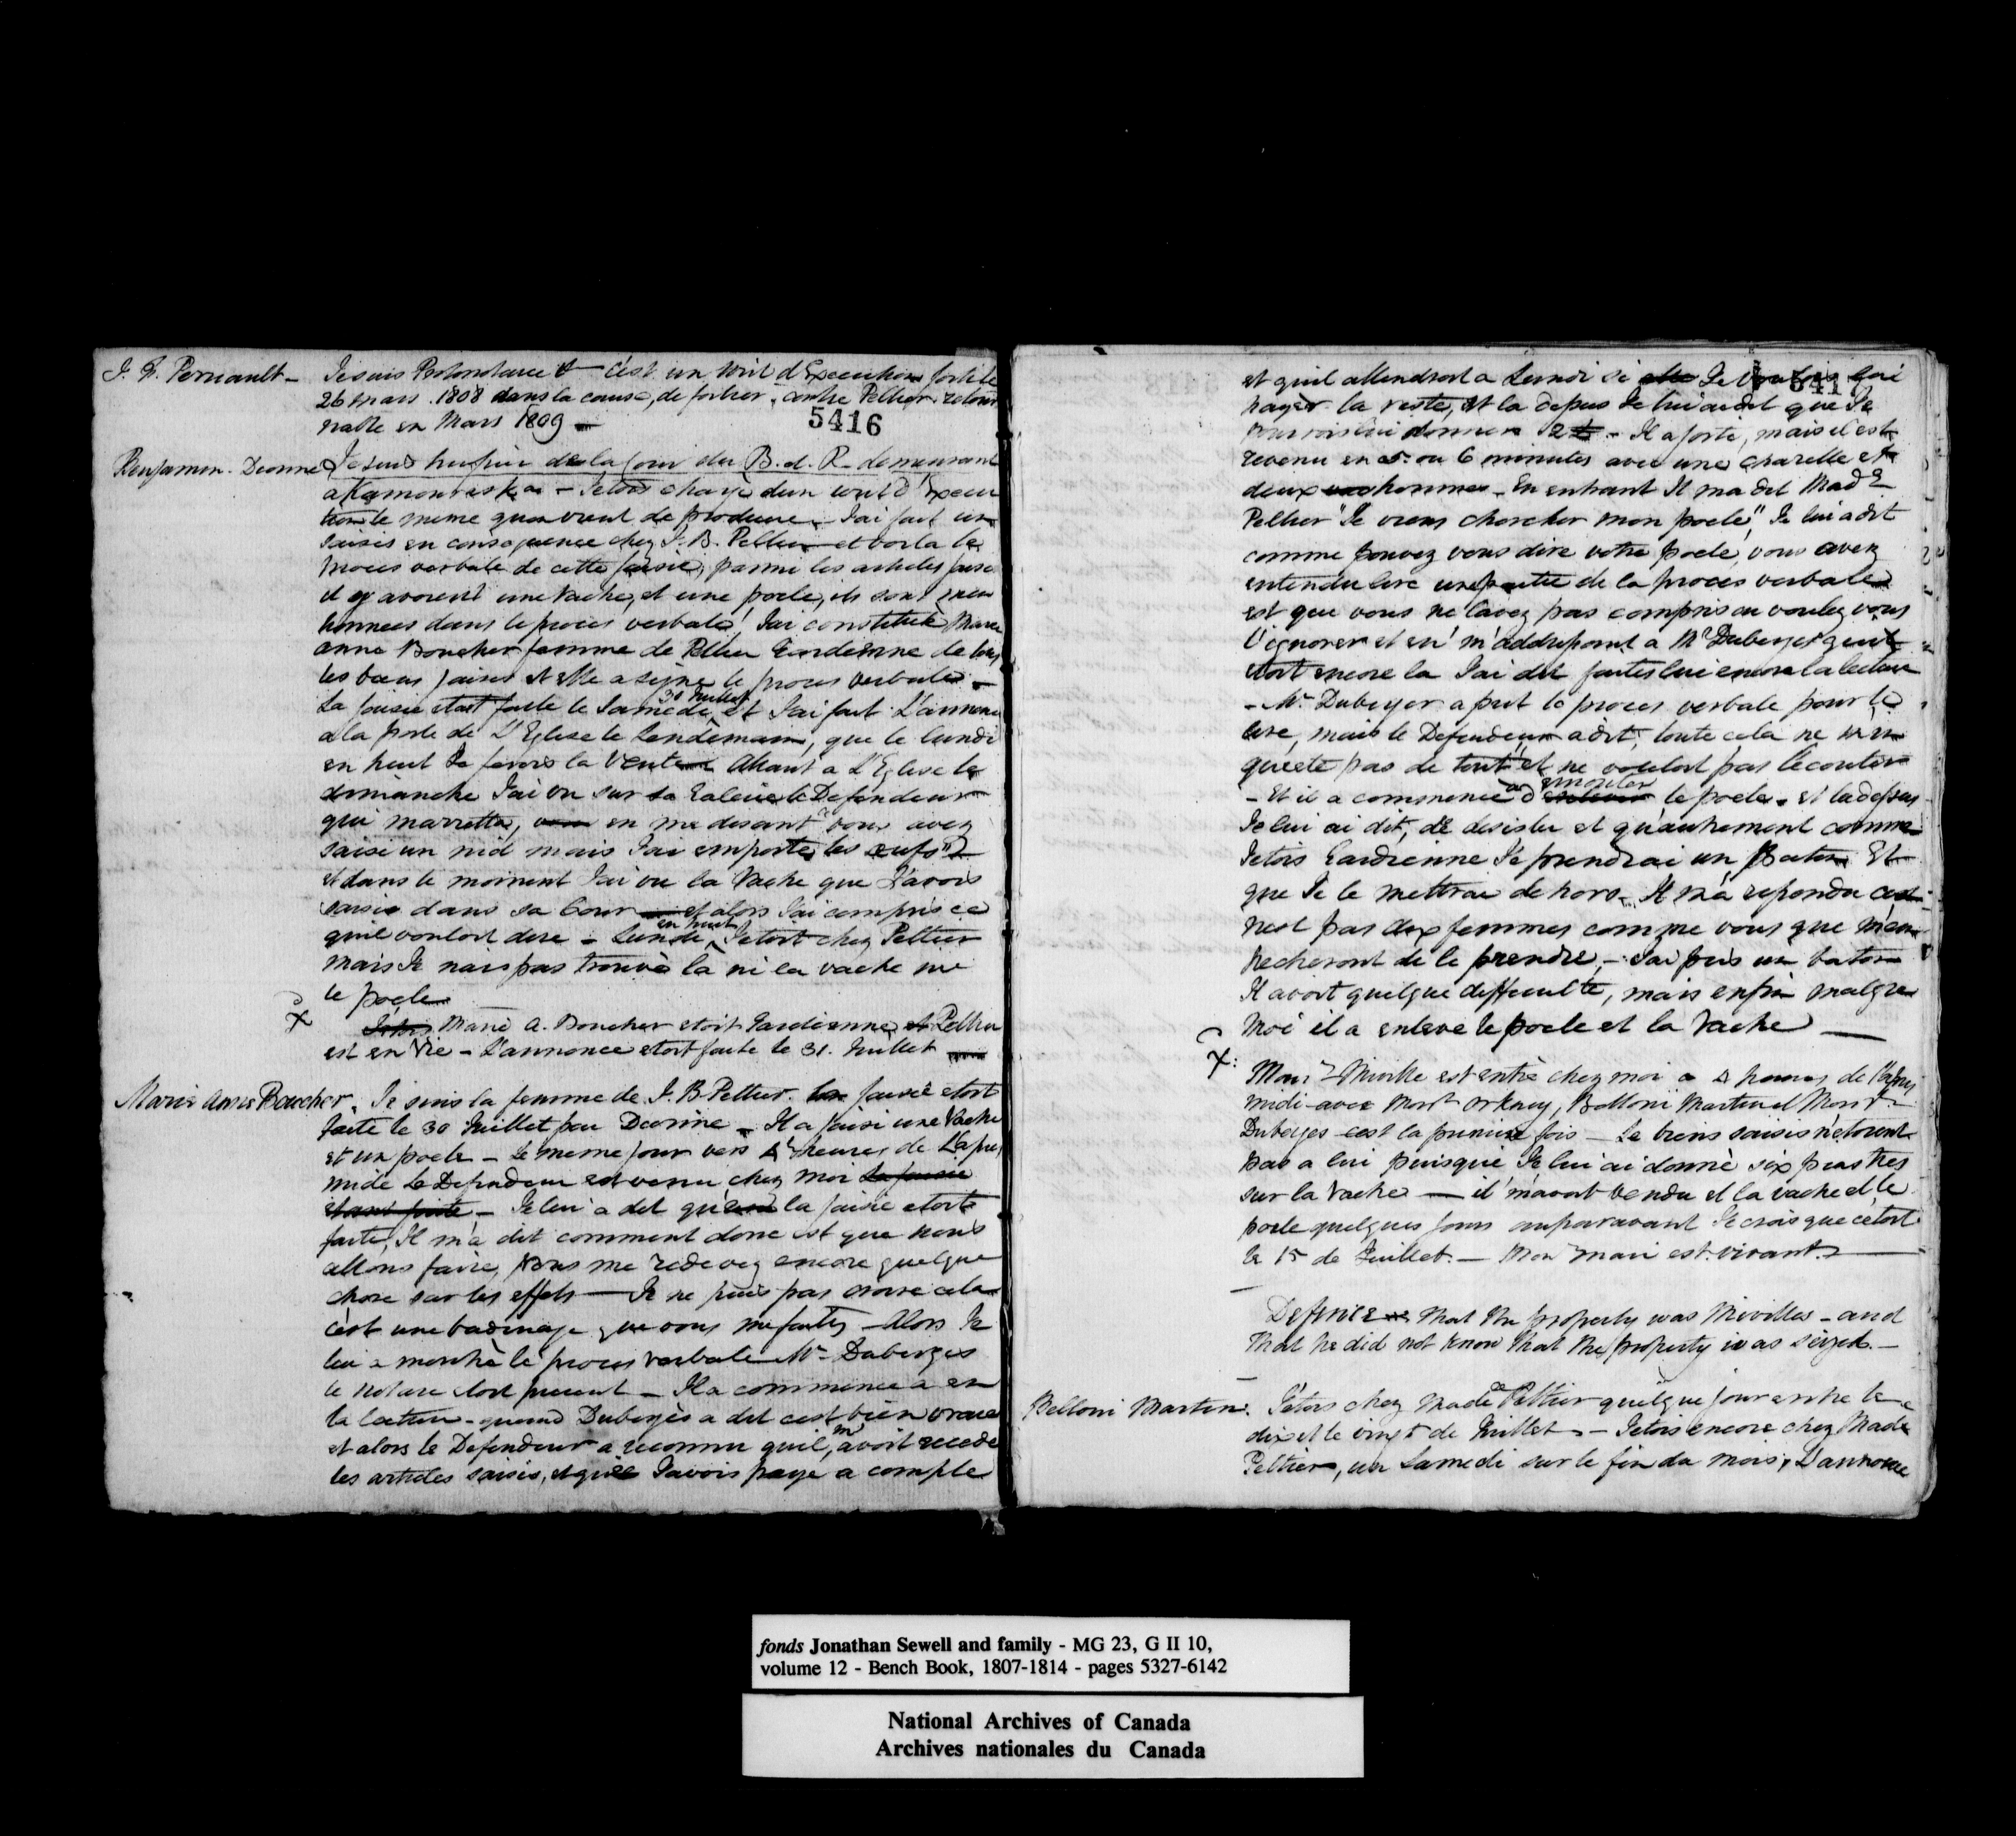 J. F. Perrault - Je suis Protonotaire & c'est un writ d'Execution sorti le
26 Mars 1808 dans la cause, de fortier contre Peltier retour
nable en Mars 1809 -
5416
Benjamin Dionne Je suis huissier de la Cour du B. d. R. demeurant
a Kamouraska - J'etois chargé d'un writ d'Execu
tion le meme qu'on vient de produire. J'ai fait une
saisie en consequence chez J. B. Peltier et voila le
proces verbale de cette saisie, parmi les articles saisi
il y avoient une vache, et une poele, ils sont men
tionnees dans le proces verbale! J'ai constitué Marie
anne Boucher femme de Peltier Gardienne de tous
les biens saisies et elle a signe le proces verbale -
La saisie etoit faite le Samedi 30 Juillet et J'ai fait L'annonce
a la porte de L'Eglise le Lendemain, que le lundi
en huit Je ferois la Vente Allant a L'Eglise le
dimanche J'ai vu sur sa Galerie le Defendeur
qui m'arretta, en me disant "vous avez
saisi un nid mais J'ai emporté les œufs"
et dans le moment J'ai vu la Vache que J'avois
saisie dans sa Cour et alors J'ai compris ce
qu'il vouloit dire - Lundi en huit J'etois chez Peltier
mais Je n'ais pas trouvés là ni la vache ni
le poele
X Marie A. Boucher etoit Gardienne et Peltier
est en Vie - L'annonce etoit faite le 31. Juillet
Marie Anne Boucher. Je suis la femme de J. B. Peltier. La saisie etoit
faite le 30 Juillet par Dionne - Il a saisi une Vache
et un poele - Le meme jour vers 4 heures de L'apres
midi Le Defendeur est venu chez moi La saisie
etant faite - Je lui a dit que la saisie etoit
faite, Il m'a dit comment donc est que nous
allons faire, Vous me redevez encore quelque
chose sur les effets - Je ne puis pas croire cela
c'est une badinage que vous me faites - Alors Je
lui a montré le proces verbale Mr Duberges
le Notaire etoit present - Il a commence a en
la lecture - quand Duberges a dit c'est bien vraie
et alors le Defendeur a reconnu qu'il m'avoit recede
les articles saisis, et que J'avois payé a compte
et qu'il attendroit a Lundi si Je voulois lui
payer la reste, et la depus Je lui ai dit que Je
pourrois lui donner 2 - Il a sorti, mais il est
revenu en 5 ou 6 minutes avec une charette et
deux hommes - En entrant Il m'a dit Made
Peltier "Je viens chercher mon poele," Je lui a dit
comme pouvez vous dire votre poele, vous avez
entendu lire une partie de la proces verbale
est que vous ne l'avez pas compris ou voulez vous
l'ignorer et en m'addressant a Mr Duberges qui
etoit encore la J'ai dit faites lui encore la lecture
- Mr Duberger a prit le proces verbale pour le
lire, mais le Defendeur a dit, toute cela ne m'in
quiete pas de tout et ne vouloit pas l'ecouter
- Et il a commencé a demonter le poele. et la dessus
Je lui ai dit, de desister et qu'autrement comme
J'etois Gardienne Je prendrai un Baton Et
que Je le mettrai dehors. Il m'a repondu ce
n'est pas dix femmes comme vous que m'em
pecheront de le prendre, - J'ai pris un baton
Il avoit quelque difficulté, mais enfin malgré
moi il a enlevé le poele et la Vache
X: Monr Miville est entré chez moi a 4 heures de l'apres
midi avec Monr Orkney, Belloni Martin et Monr
Duberges c'est la premiere fois - Le biens saisis n'etoient
pas a lui puisque Je lui ai donné six piastres
sur la Vache - il m'avoit vendu et la vache et le
poele quelques jours auparavant Je crois que c'etoit
le 15 de Juillet. - Mon mari est vivant.
Defence That the property was Mivilles - and
that he did not know that the property was seized. -
Belloni Martin. J'etois chez Made Peltier quelque jour entre le
dix et le vingt de Juillet - J'etois encore chez Made
Peltier, un Samedi sur le fin du mois, L'annonce
fonds Jonathan Sewell and family - MG 23, G II 10,
volume 12 - Bench Book, 1807-1814 - pages 5327-6142
National Archives of Canada
Archives nationales du Canada